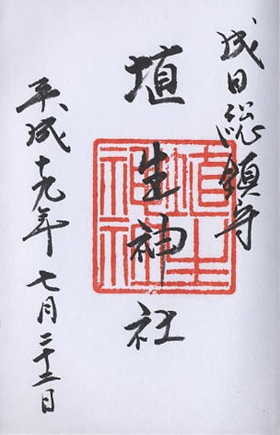 成田総鎮守
埴生神社
平成十九年七月二十二日
埴生神社